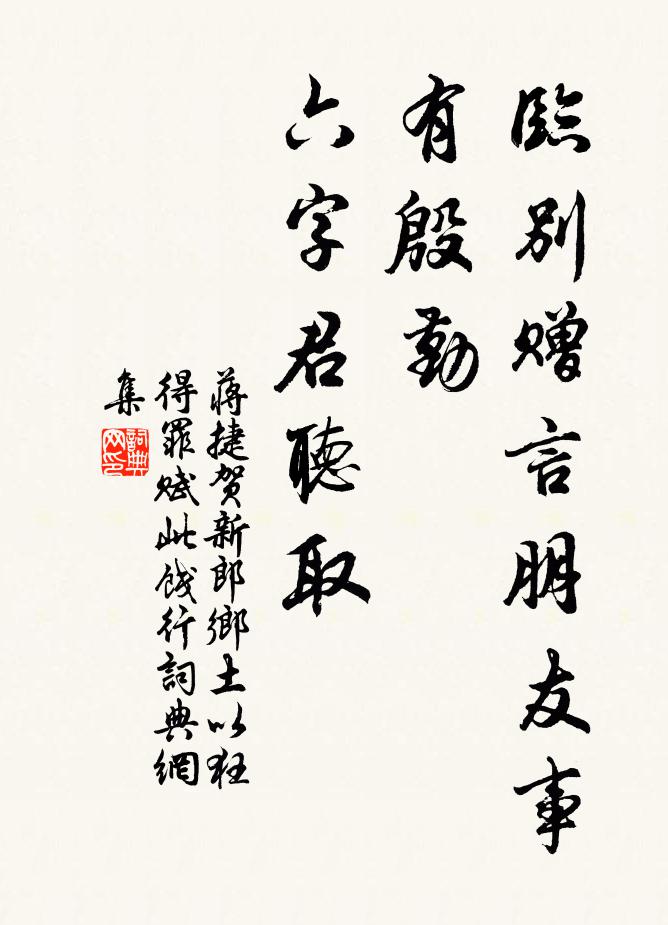 臨別贈言朋友事
有殷勤
六字君聽取
蔣捷賀新郎鄉士以狂
得罪賦此餞行詞典網
集
詞典
网印